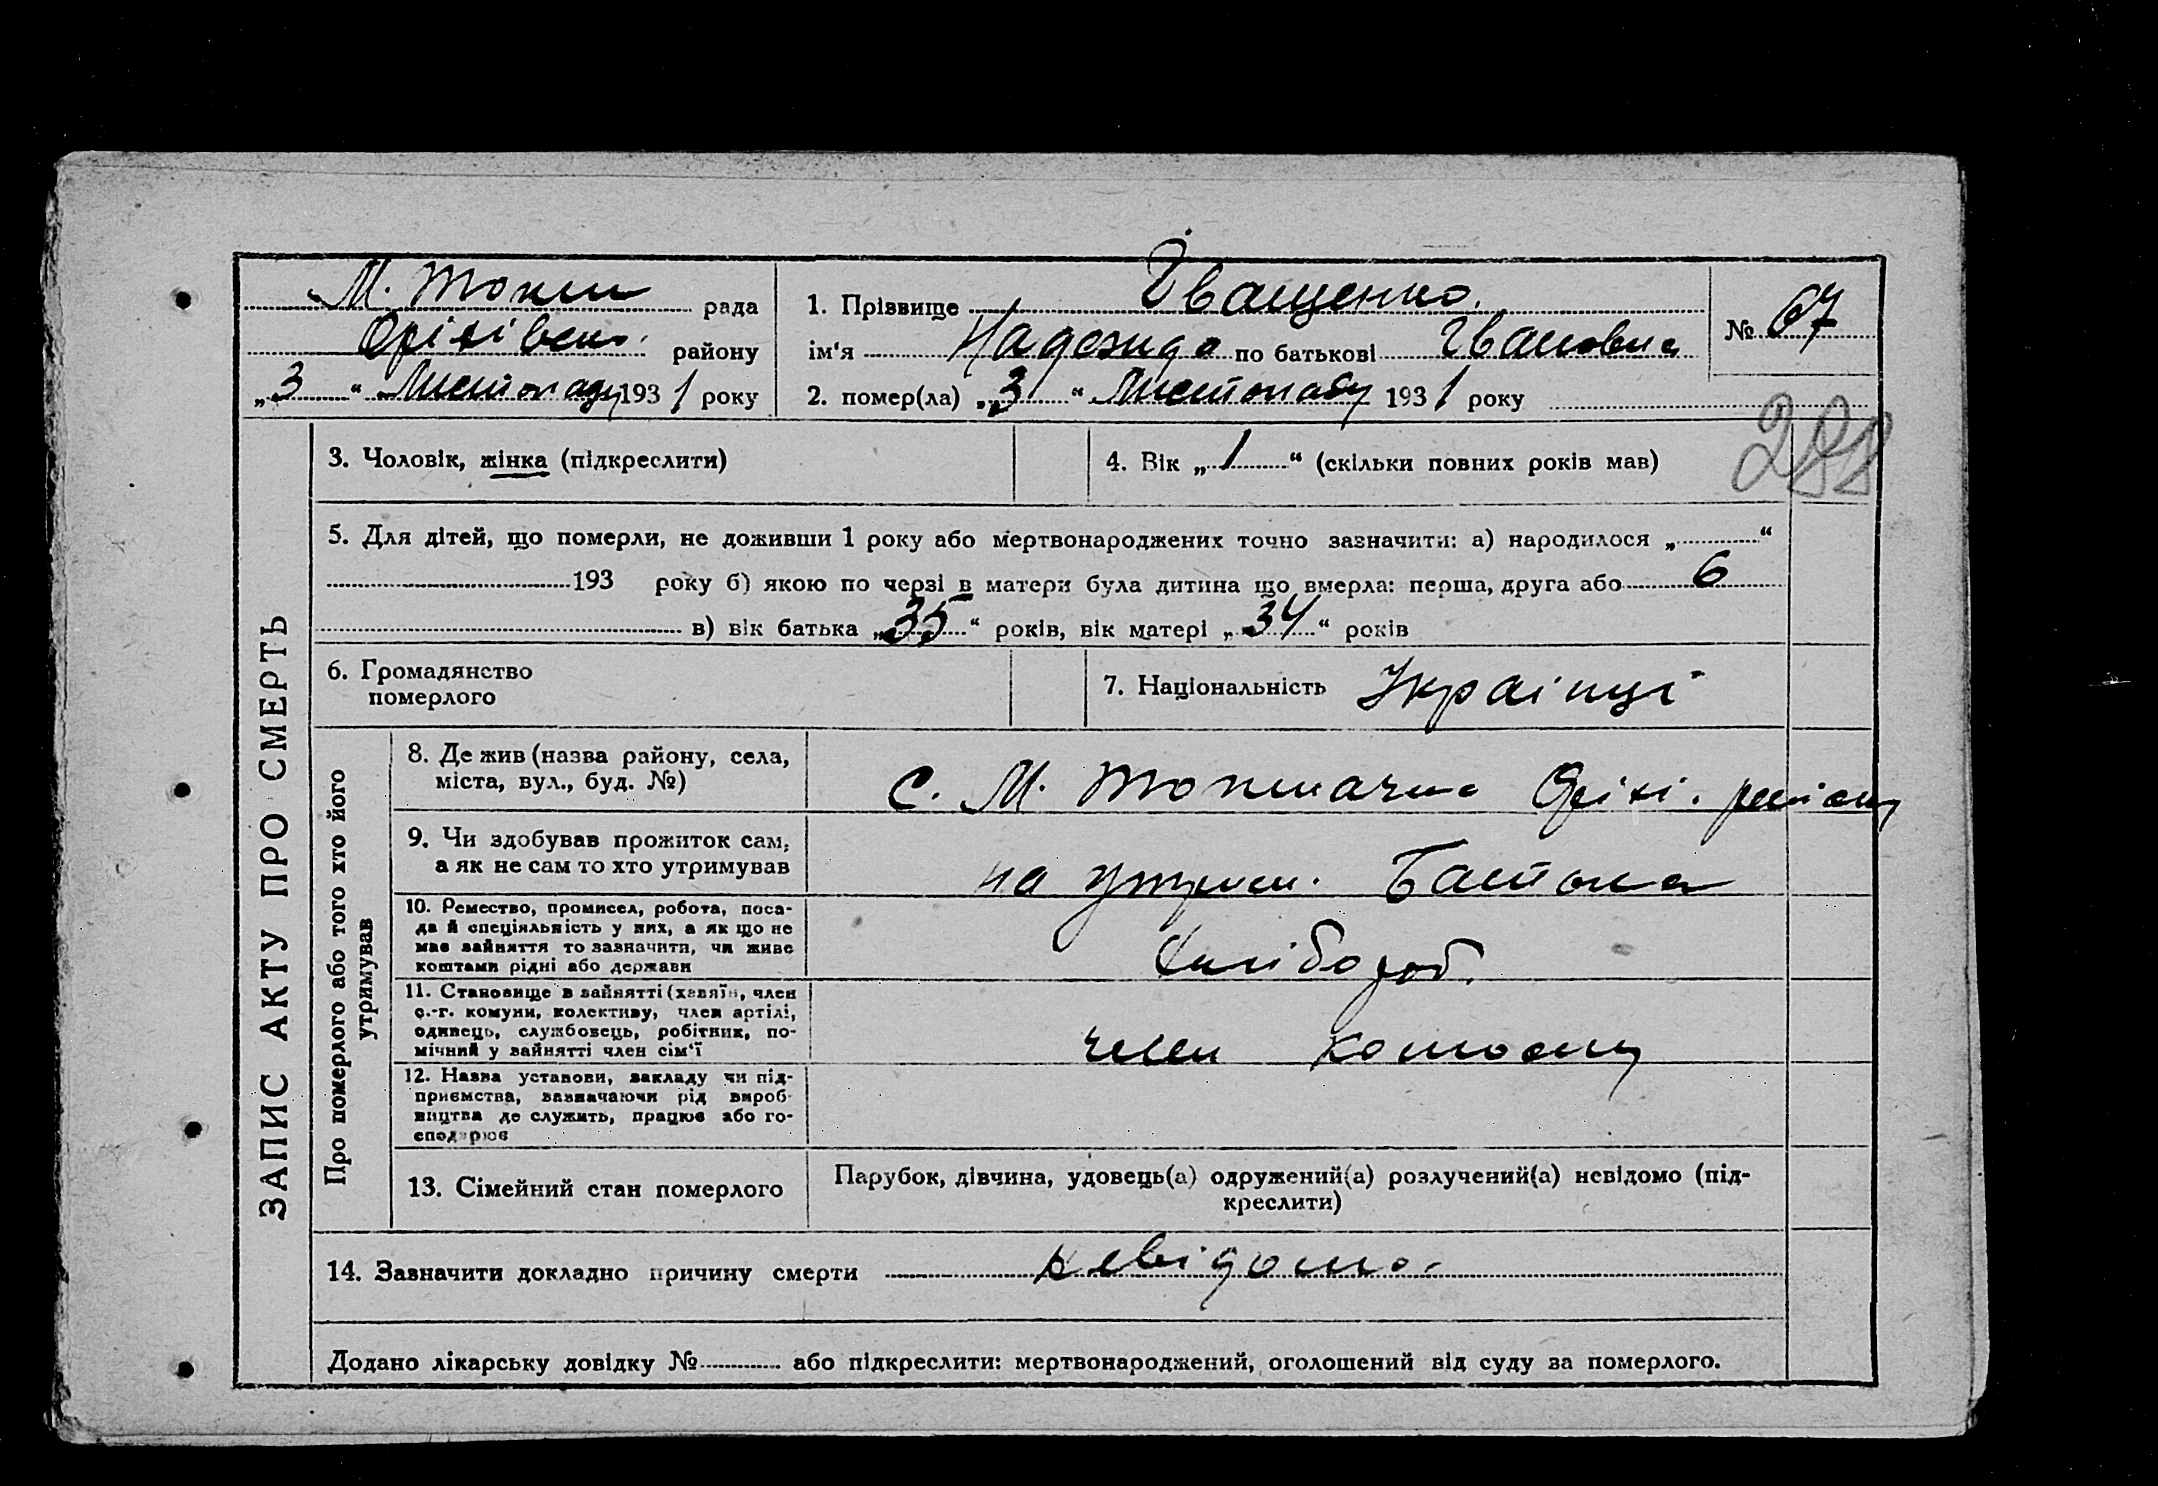 М. Токм рада
Оріхівськ. району
„3“ Листопаду 1931 року
1. Прізвище Іващенко.
ім'я Надежда по батькові Івановна
№ 67
2. помер(ла) „3“ Листопаду 1931 року
288
ЗАПИС АКТУ ПРО СМЕРТЬ
3. Чоловік, жінка (підкреслити)
4. Вік „1“ (скільки повних років мав)
5. Для дітей, що померли, не доживши 1 року або мертвонароджених точно зазначити: а) народилося „ “
193 року б) якою по черзі в матери була дитина що вмерла: перша, друга або 6
в) вік батька „35“ років, вік матері „34“ років
6. Громадянство
померлого
7. Національність Українці
Про померлого або того хто його
утримував
8. Де жив (назва району, села,
міста, вул., буд. №)
с. М. Токмачка Оріхі. району
9. Чи здобував прожиток сам,
а як не сам то хто утримував
на утриман. Батька
10. Ремество, промисел, робота, поса-
да й спеціяльність у них, а як що не
мав зайняття то зазначити, чи живе
коштами рідні або держави
Хлібороб.
11. Становище в зайнятті (хазяїн, член
с.-г. комуни, колективу, член артілі,
одинець, службовець, робітник, по-
мічний у зайнятті член сім'ї
член
12. Назва установи, закладу чи під-
приємства, зазначаючи рід вироб-
ництва де служить, працює або го-
сподарює
13. Сімейний стан померлого
Парубок, дівчина, удовець(а) одружений(а) розлучений(а) невідомо (під-
креслити)
14. Зазначити докладно причину смерти невідомо.
Додано лікарську довідку № або підкреслити: мертвонароджений, оголошений від суду за померлого.